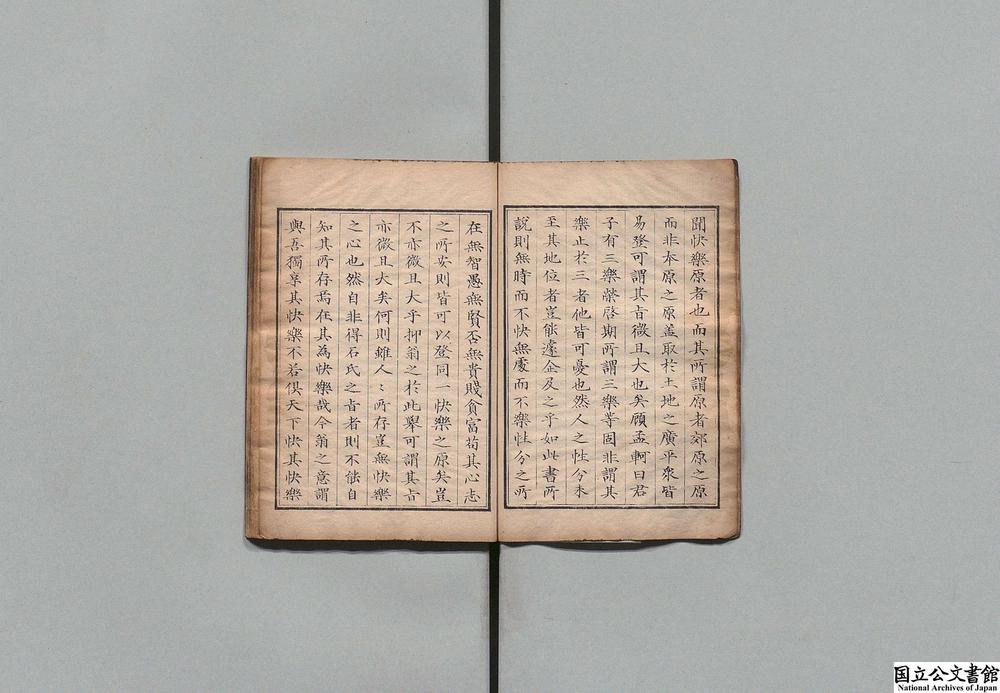 聞快樂原者也而其所謂原者郊原之原
而非本原之原盖取於土地之廣平衆皆
易登可謂其旨微且大也矣顧孟軻曰君
子有三樂榮啓期所謂三樂等固非謂其
樂止於三者他皆可憂也然人之性分未
至其地位者豈能遽企及之乎如此書所
說則無時而不快無處而不樂性分之所
在無智愚無賢否無貴賤貧富苟其心志
之所安則皆可以登同一快樂之原矣豈
不亦微且大乎抑翁之於此擧可謂其旨
亦微且大矣何則雖人〻所存豈無快樂
之心也然自非得石氏之旨者則不能自
知其所存焉在其為快樂哉今翁之意謂
與吾獨享其快樂不若俱天下快其快樂
国立公文書館
National Archives of Japan